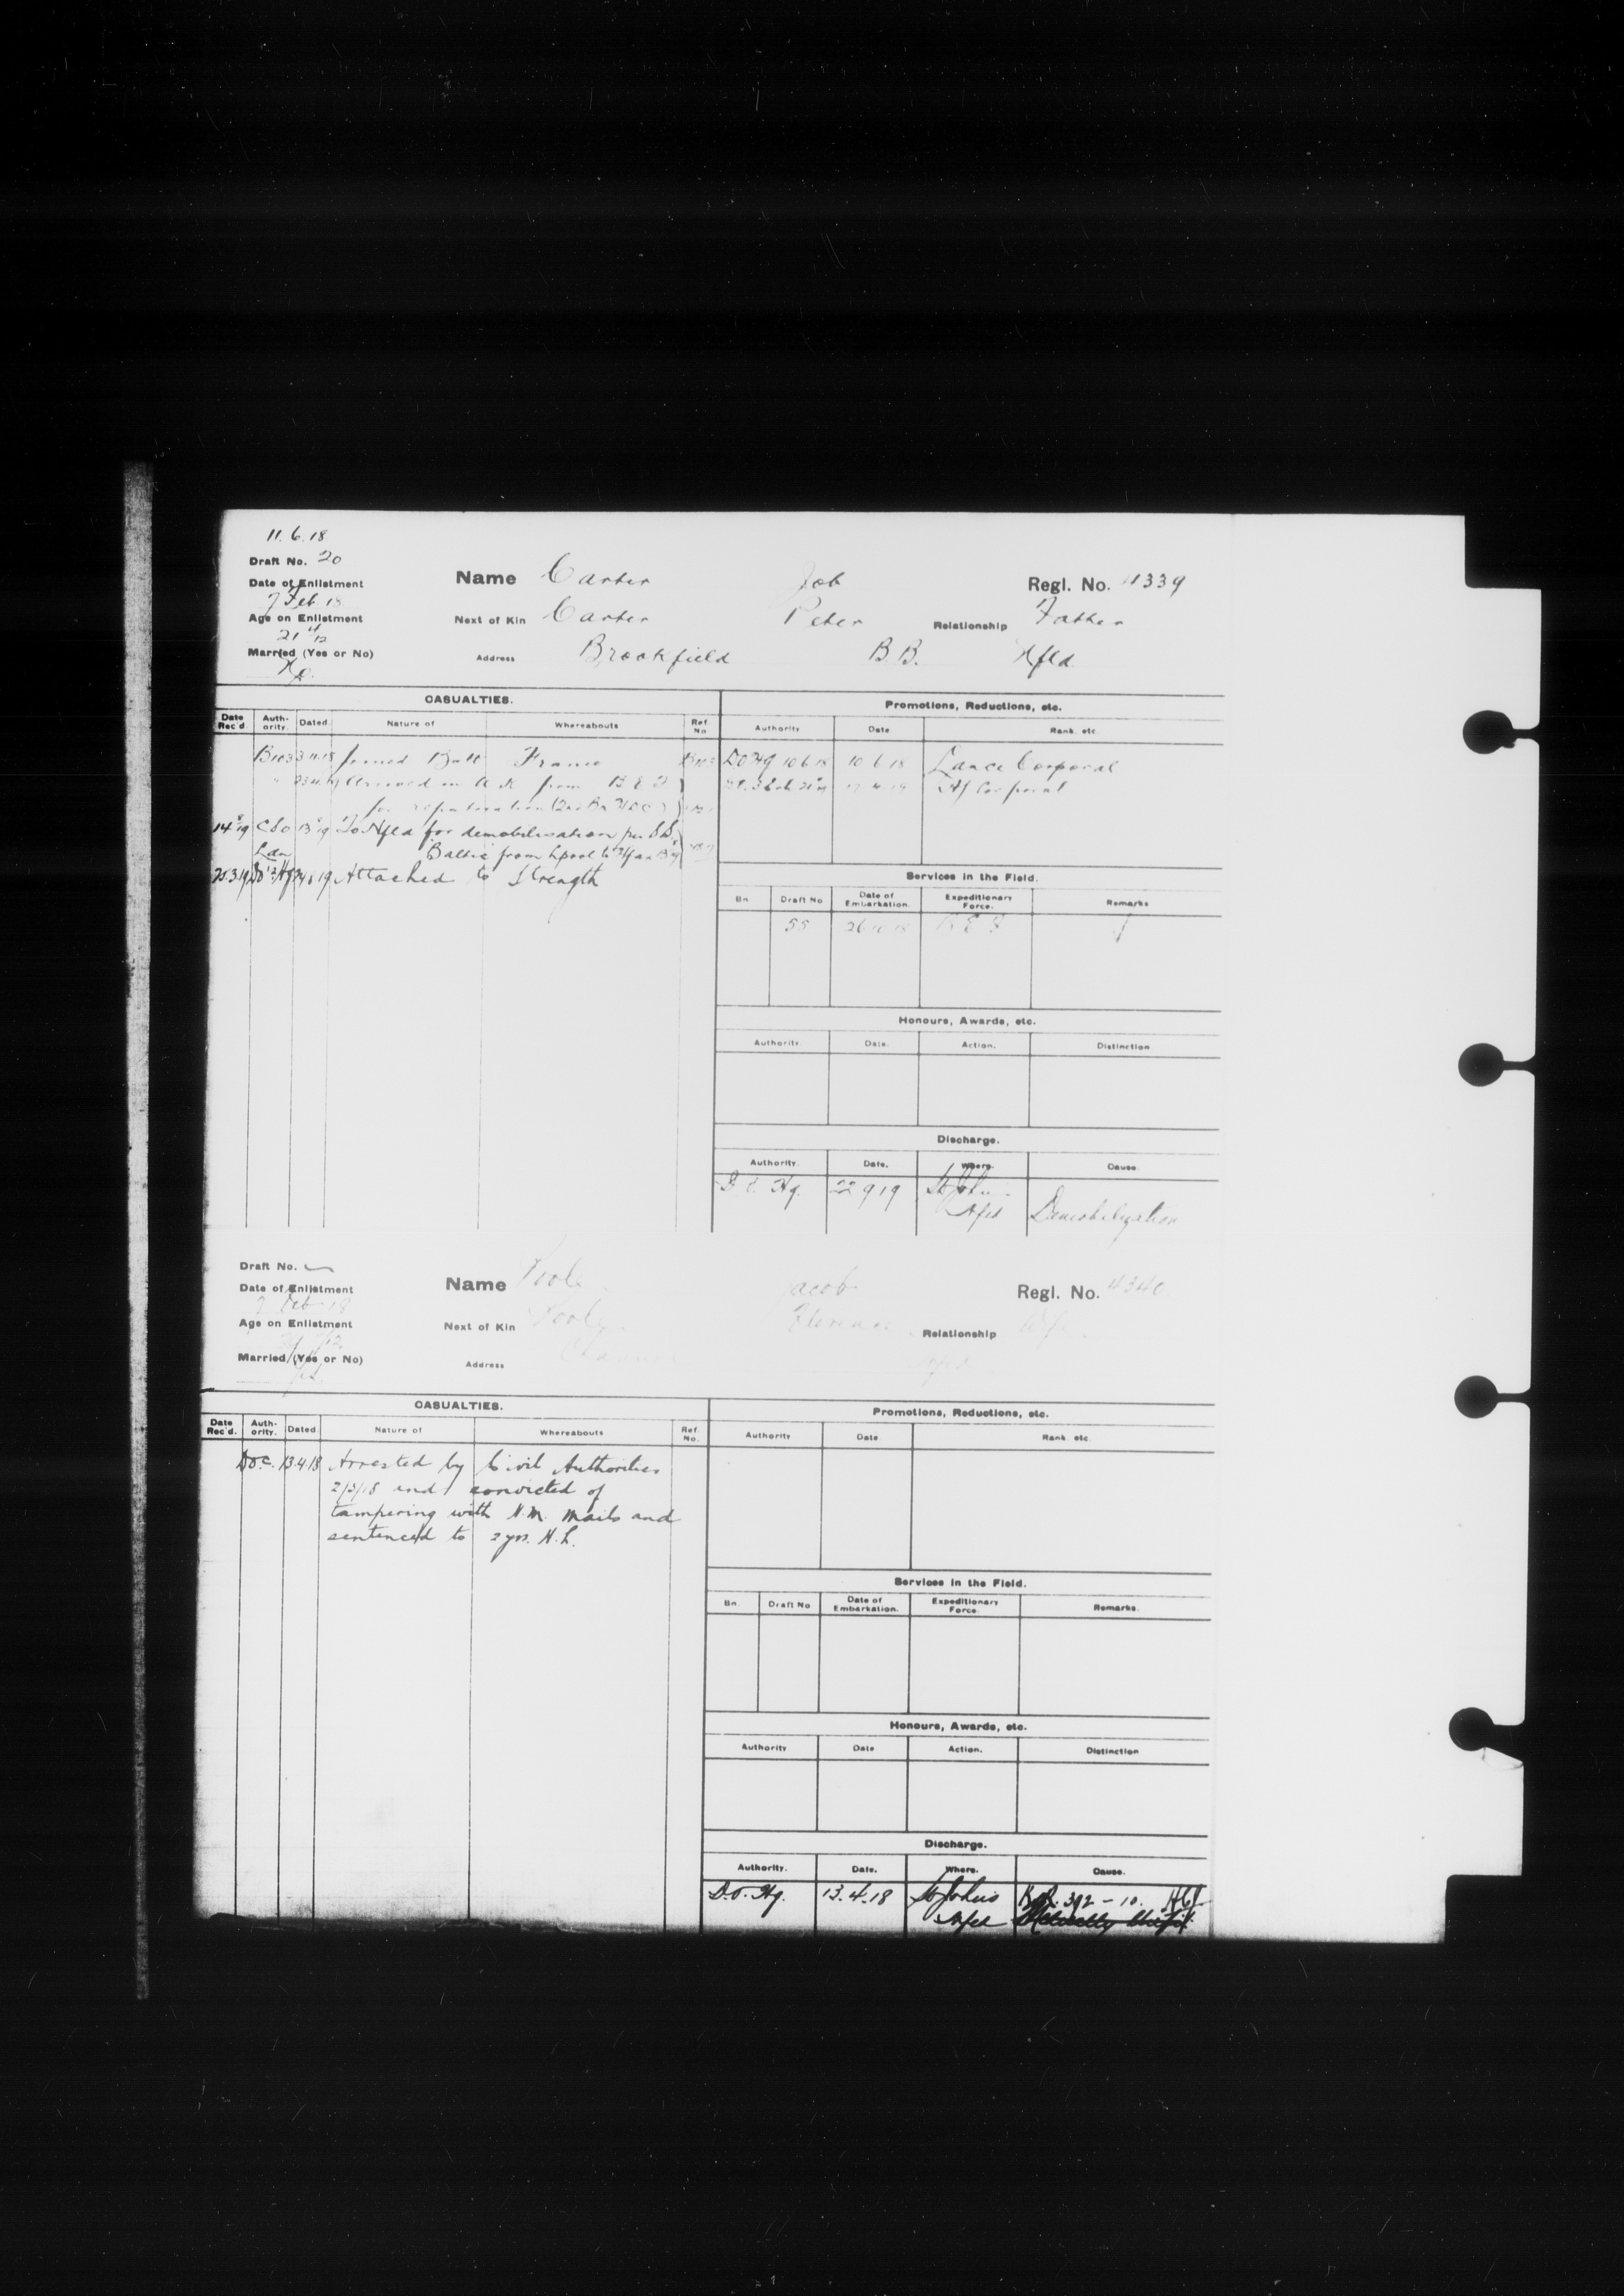 11.6.18
Draft No. 20
Date of Enlistment
7 Feb 18
Age on Enlistment
21 4/12
Married (Yes or No)
No.
Name Carter Job Regl. No. 4339
Next of Kin Carter Peter Relationship Father
Address Brookfield B.B. Nfld
CASUALTIES.
Date Rec'd. Auth- ority. Dated. Nature of Whereabouts Ref. No
B103 3 11.18 Joined Batt France B103
Arrived in U.K from B E F
for repatriation
14 8/19 CSO 13 8/19 To Nfld for demobilisation per S.S.
Baltic from Lpool to
Attached to Strength
Promotions, Reductions, etc.
Authority Date Rank. etc
DO Hq 10 6 18 10 6 18 Lance Corporal
A/ Corporal
Services in the Field.
Bn Draft No Date of Embarkation. Expeditionary Force. Remarks
55 26 10 18 B E F
Honours, Awards, etc.
Authority. Date. Action. Distinction
Discharge.
Authority. Date. Where. Cause.
D.O. Hq. 22 9 19 St Johns Nfld Demobilization
Draft No.
Date of Enlistment
7 Feb 18
Age on Enlistment
Married (Yes or No)
Yes
Name Poole Jacob Regl. No. 4340
Next of Kin Poole Relationship Wife
Address Nfld
CASUALTIES.
Date Rec'd. Auth- ority. Dated. Nature of Whereabouts Ref. No.
D.O.C. 13.4.18 Arrested by Civil Authorities
2/3/18 and convicted of
tampering with H.M. Mails and
sentenced to 2 yrs. H.L.
Promotions, Reductions, etc.
Authority Date Rank. etc
Services in the Field.
Bn. Draft No Date of Embarkation. Expeditionary Force. Remarks.
Honours, Awards, etc.
Authority Date Action. Distinction
Discharge.
Authority. Date. Where. Cause.
D.O. Hq. 13.4.18 St Johns Nfld K.R. 392 - 10.